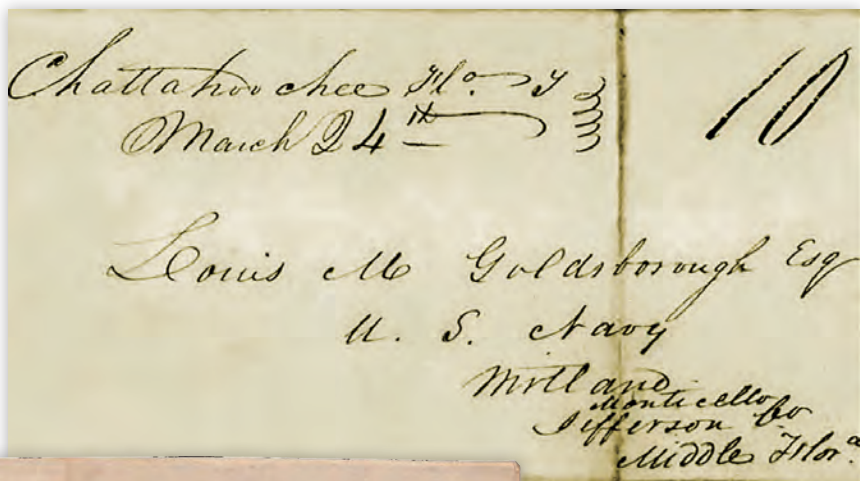 Chattahoochee Flo. T
March 24th
10
Louis M Goldsborough Esq
U. S. Navy
Wirtland
Monticello
Jefferson Co
Middle Flora.